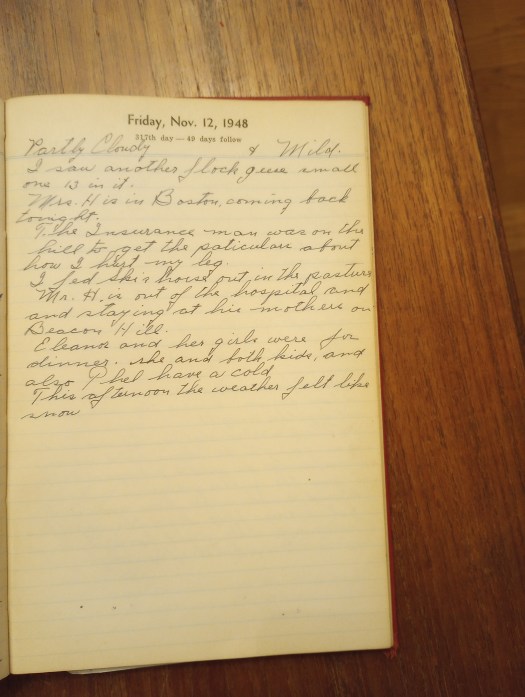 Friday, Nov. 12, 1948
317th day — 49 days follow
Partly Cloudy & Mild.
I saw another flock geese small
one 13 in it.
Mrs. H is in Boston, coming back
tonight.
The Insurance man was on the
hill to get the paticulars about
how I hurt my leg.
I fed Ski's horse out in the pasture
Mr. H. is out of the hospital and
and staying at his mothers on
Beacon Hill.
Eleanor and her girls were for
dinner. she and both kids, and
also Phel have a cold
This afternoon the weather felt like
snow